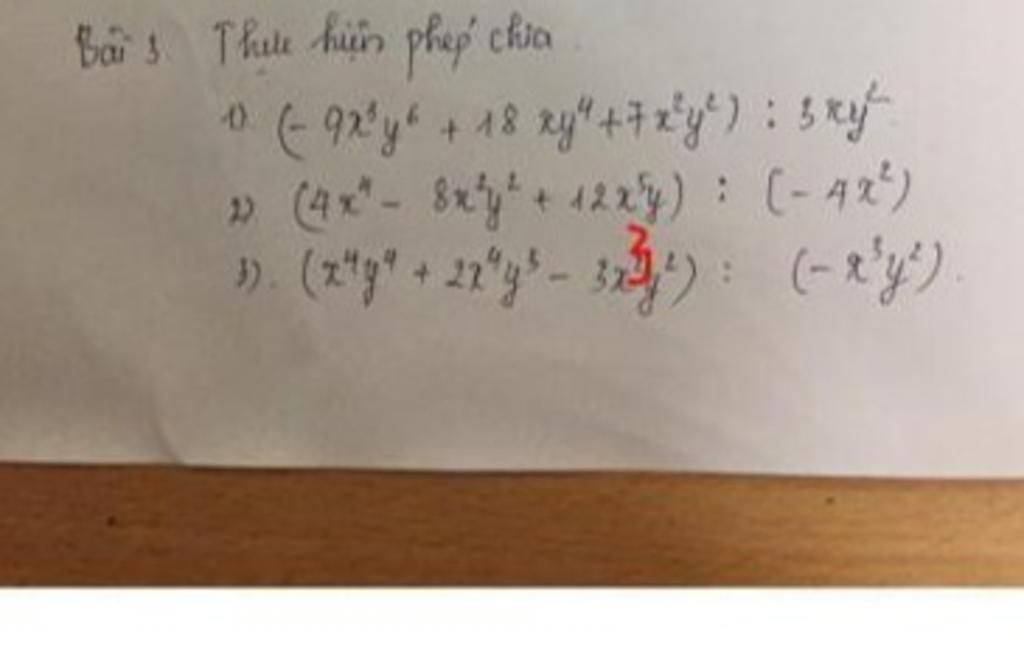 Bài 3. Thực hiện phép chia
1) (- 9x³y⁶ + 18 xy⁴ + 7x²y²) : 3xy²
2) (4x⁴ - 8x²y² + 12x⁵y) : (- 4x²)
3). (x⁴y⁴ + 2x⁴y³ - 3x³y²) : (- x³y²).